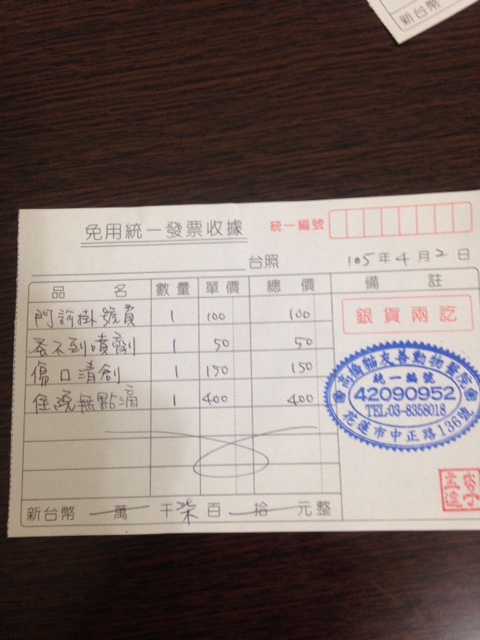 新台幣
免用統一發票收據
統一編號
台照
105年4月2日
品名 數量 單價 總價 備註
門診掛號費 1 100 100
蚤不到噴劑 1 50 50
傷口清創 1 150 150
住院無點滴 1 400 400
銀貨兩訖
高橋貓友善動物醫院
統一編號
42090952
TEL:03-8358018
花蓮市中正路136號
新台幣 萬 千 柒 百 拾 元整